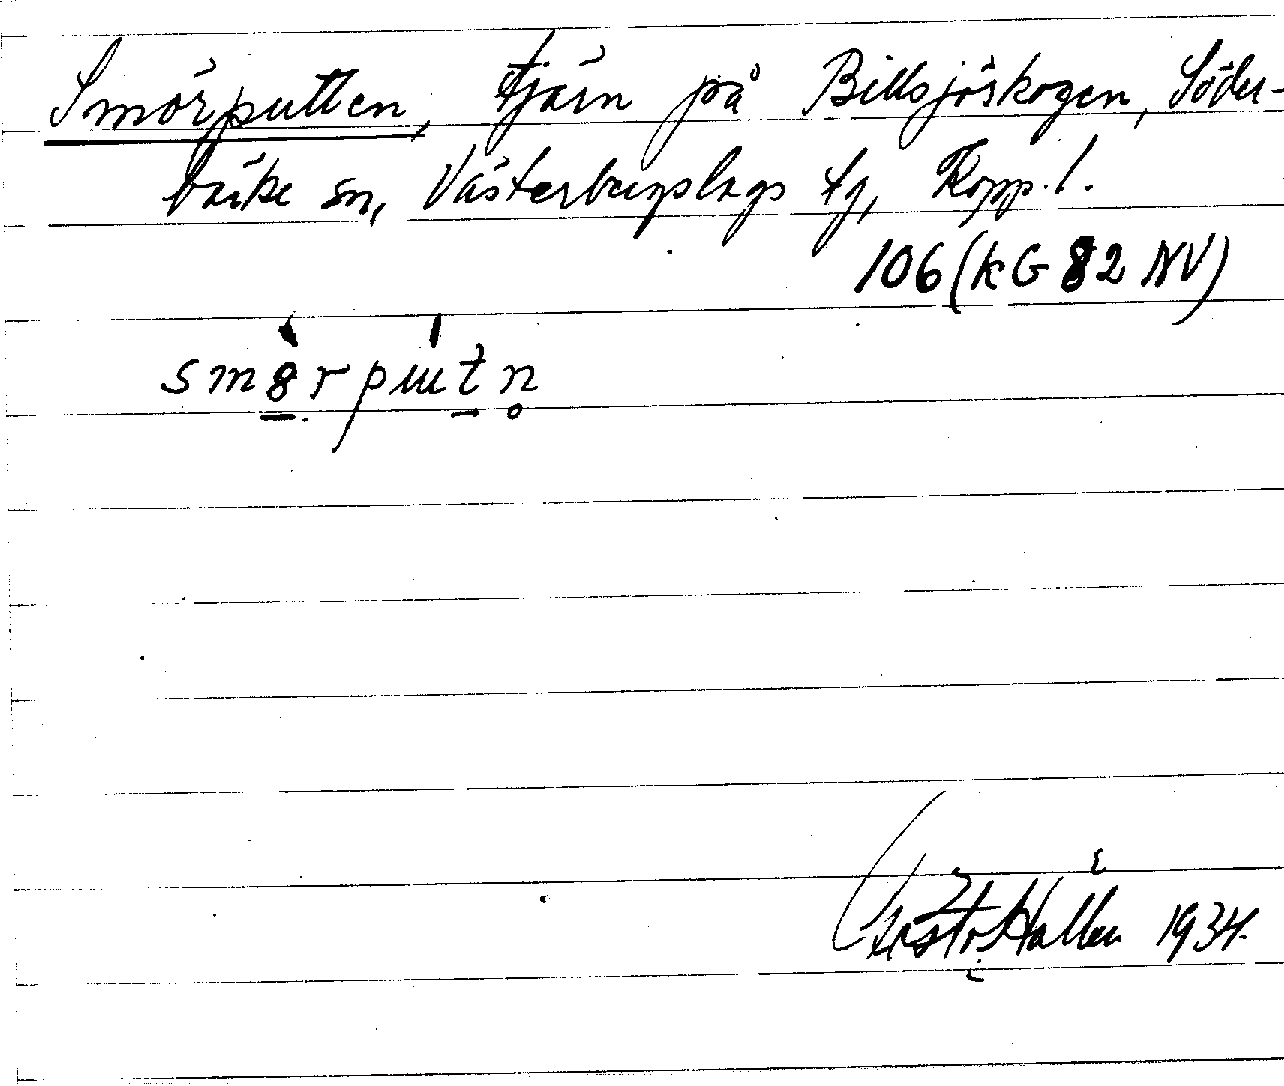 Smörputten, tjärn på Billsjöskogen, Söder-
bärke sn, Västerbergslags tg, Kopp. l.
106 (kG 82 NV)
smörputn
Gösta Hallén 1934.